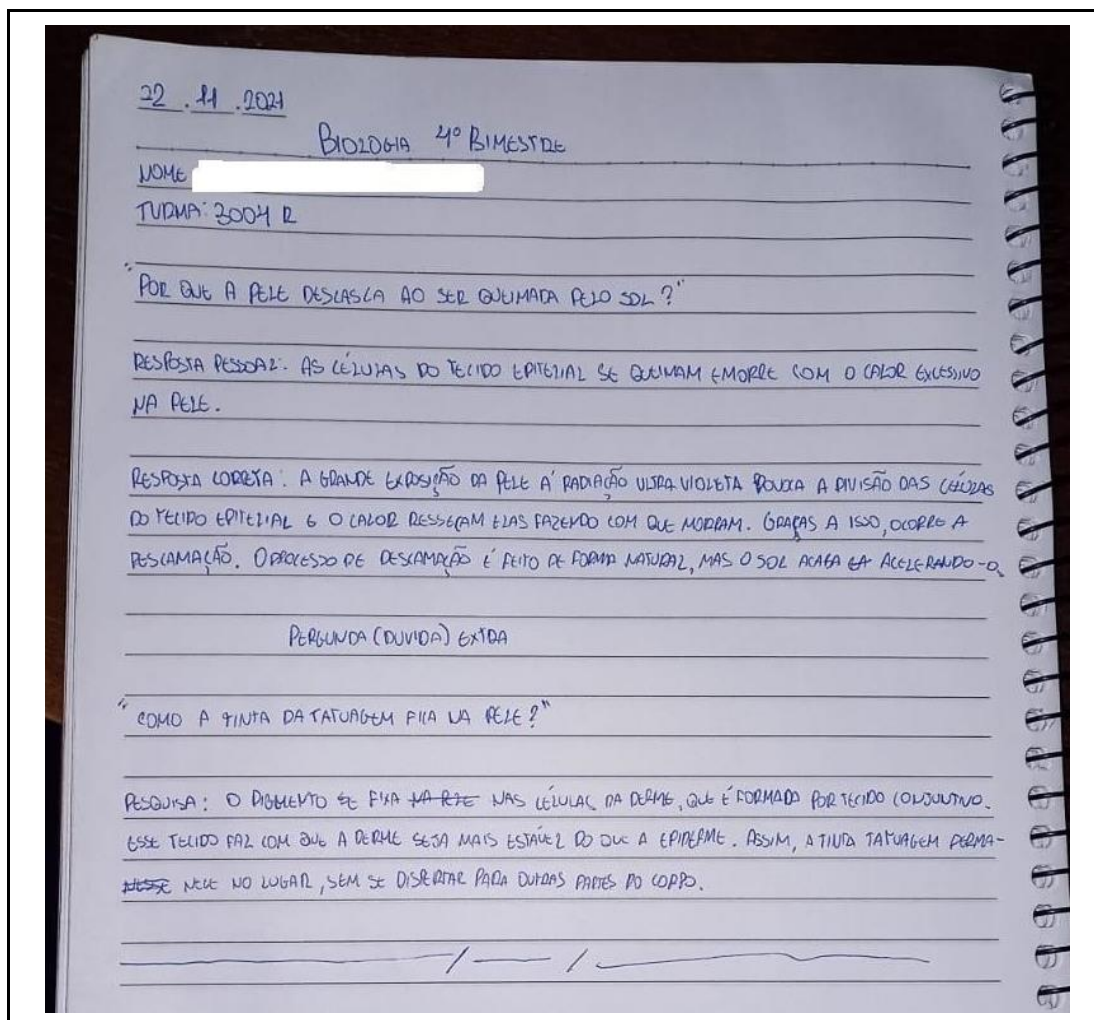 22.11.2021
BIOLOGIA 4º BIMESTRE
NOME
TURMA: 3004 R
"POR QUE A PELE DESCASCA AO SER QUEIMADA PELO SOL?"
RESPOSTA PESSOAL: AS CÉLULAS DO TECIDO EPITELIAL SE QUEIMAM E MORRE COM O CALOR EXCESSIVO
NA PELE.
RESPOSTA CORRETA: A GRANDE EXPOSIÇÃO DA PELE Á RADIAÇÃO ULTRA VIOLETA A DIVISÃO DAS CÉLULAS
DO TECIDO EPITELIAL E O CALOR RESSECAM ELAS FAZENDO COM QUE MORRAM. GRAÇAS A ISSO, OCORRE A
DESCAMAÇÃO. O PROCESSO DE DESCAMAÇÃO É FEITO DE FORMA NATURAL, MAS O SOL ACABA ACELERANDO-O
PERGUNDA (DUVIDA) EXTRA
"COMO A TINTA DA TATUAGEM FICA NA PELE?"
PESQUISA: O PIGMENTO SE FIXA NAS CÉLULAS DA DERME, QUE É FORMADA POR TECIDO CONJUNTIVO.
ESSE TECIDO FAZ COM QUE A DERME SEJA MAIS ESTÁVEL DO QUE A EPIDERME. ASSIM, A TINTA TATUAGEM PERMA-
NECE NO LUGAR, SEM SE PARA OUTRAS PARTES DO CORPO.